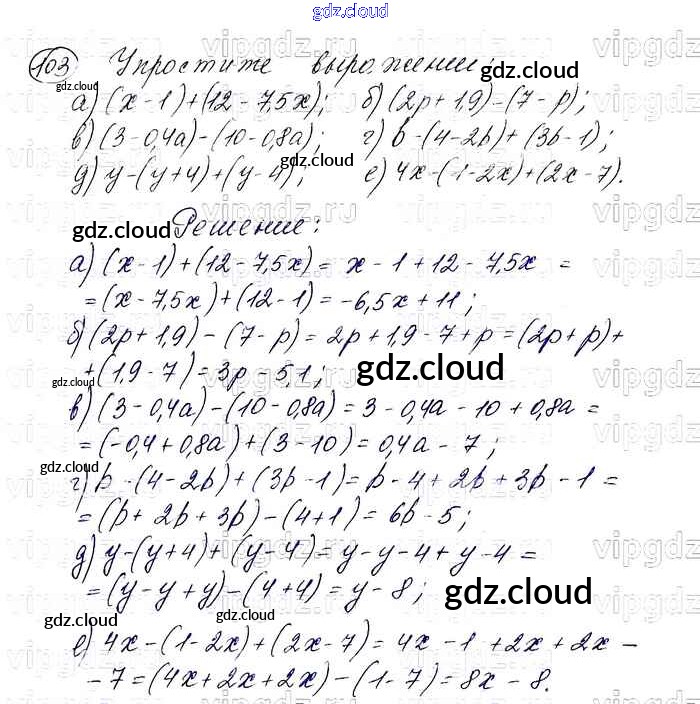 gdz.cloud
103 Упростите выражение:
а) (x - 1) + (12 - 7,5x); б) (2p + 1,9) - (7 - p);
в) (3 - 0,4a) - (10 - 0,8a); г) b - (4 - 2b) + (3b - 1);
д) y - (y + 4) + (y - 4); е) 4x - (1 - 2x) + (2x - 7).
Решение:
а) (x - 1) + (12 - 7,5x) = x - 1 + 12 - 7,5x =
= (x - 7,5x) + (12 - 1) = -6,5x + 11;
б) (2p + 1,9) - (7 - p) = 2p + 1,9 - 7 + p = (2p + p) +
+ (1,9 - 7) = 3p - 5,1;
в) (3 - 0,4a) - (10 - 0,8a) = 3 - 0,4a - 10 + 0,8a =
= (-0,4 + 0,8a) + (3 - 10) = 0,4a - 7;
г) b - (4 - 2b) + (3b - 1) = b - 4 + 2b + 3b - 1 =
= (b + 2b + 3b) - (4 + 1) = 6b - 5;
д) y - (y + 4) + (y - 4) = y - y - 4 + y - 4 =
= (y - y + y) - (4 + 4) = y - 8;
е) 4x - (1 - 2x) + (2x - 7) = 4x - 1 + 2x + 2x -
- 7 = (4x + 2x + 2x) - (1 - 7) = 8x - 8.
gdz.cloud
gdz.cloud
gdz.cloud
gdz.cloud
gdz.cloud
gdz.cloud
gdz.cloud
gdz.cloud
gdz.cloud
gdz.cloud
gdz.cloud
vipgdz.ru